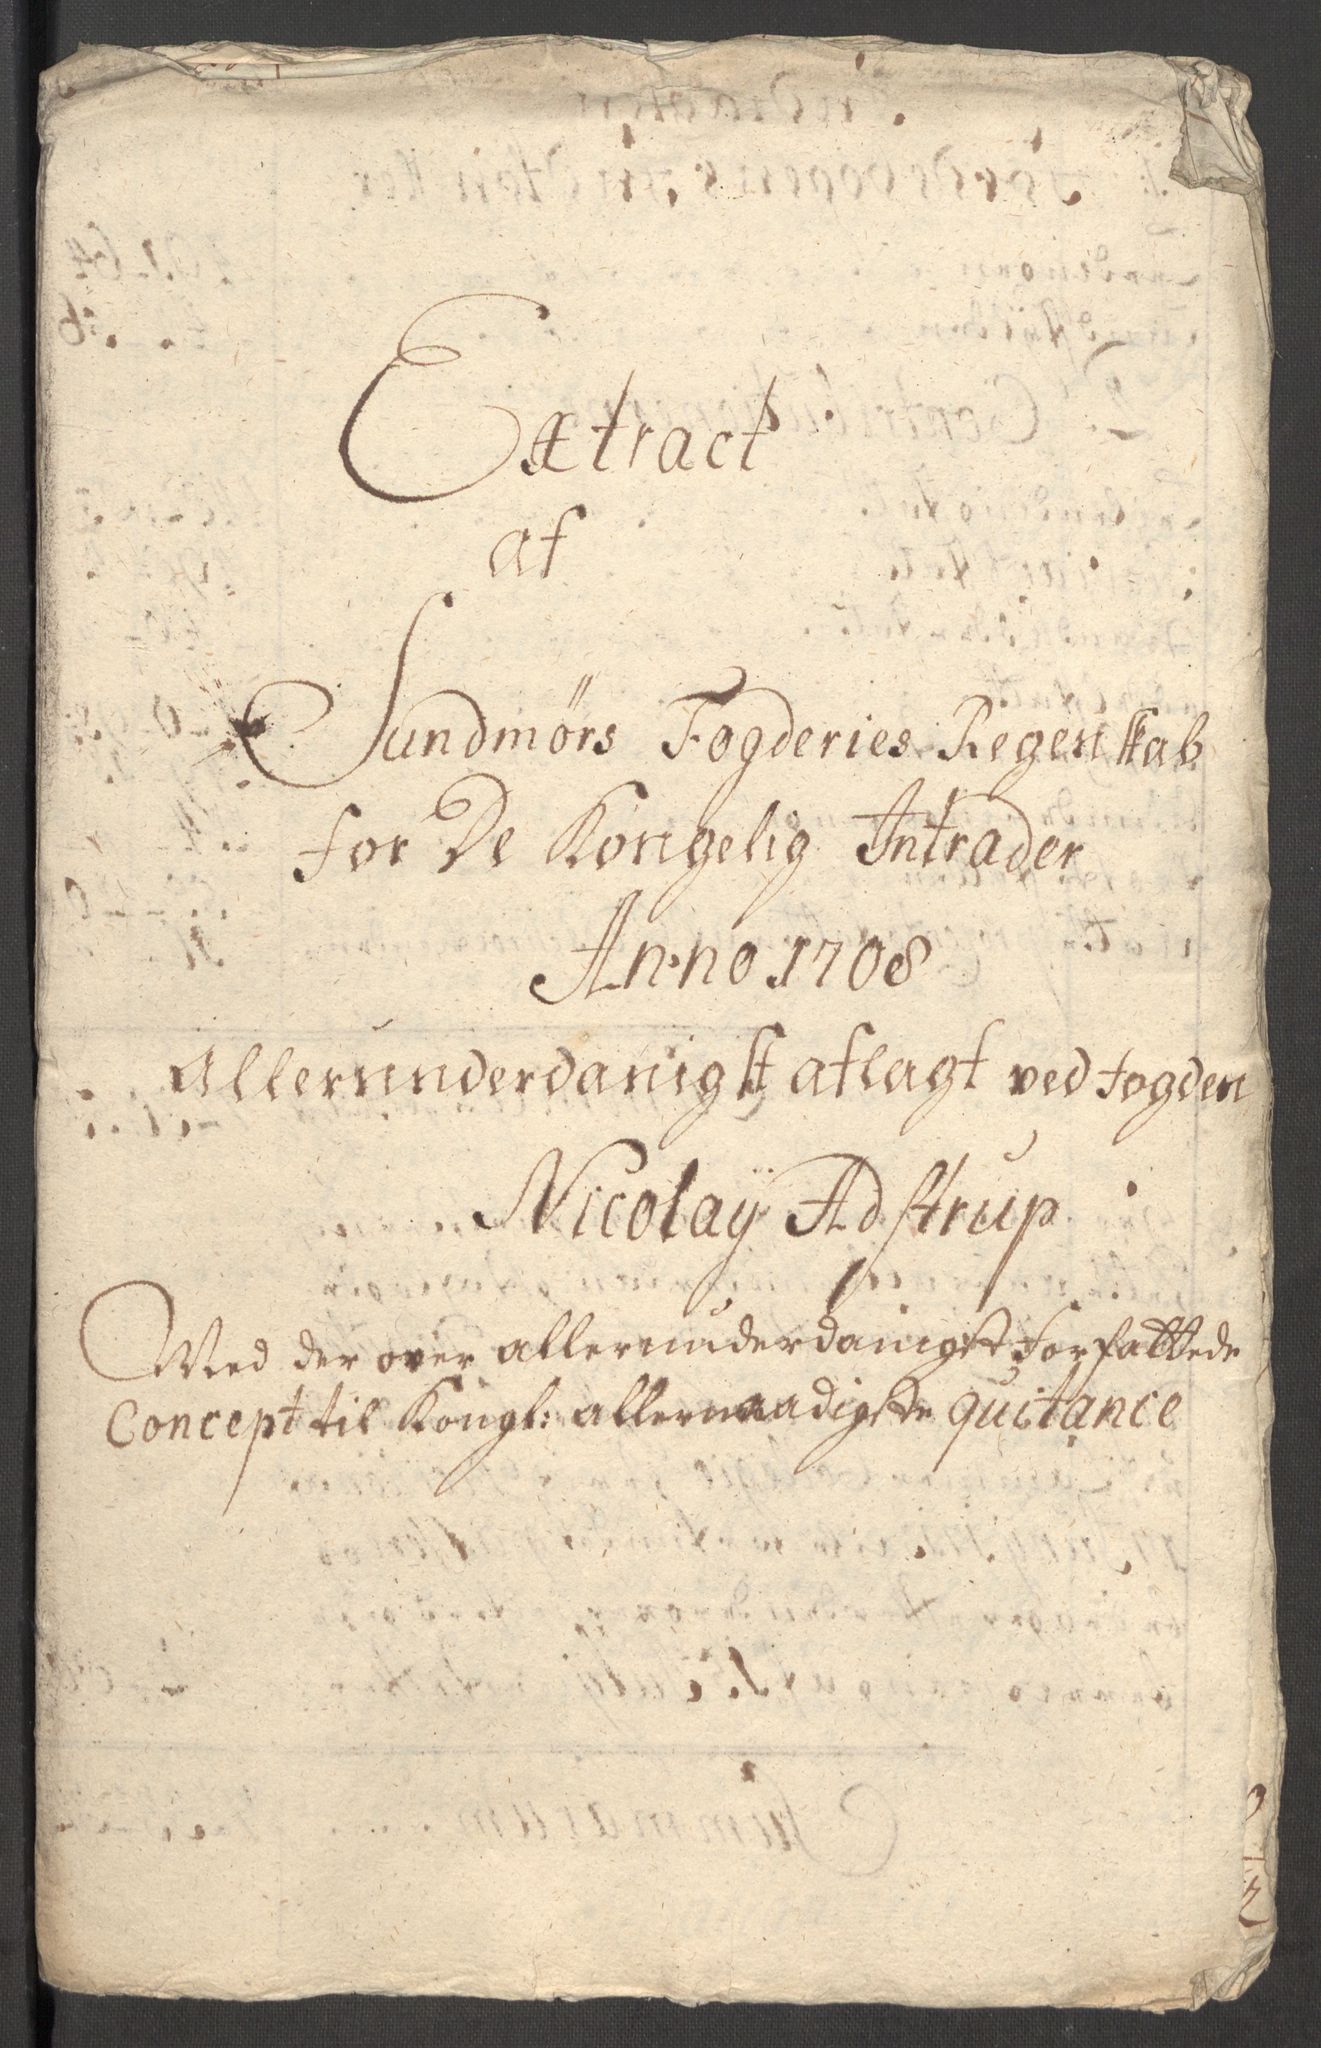 Extract
af
Sundmørs Fogderies Regenskab
for De Kongelig Intrader
Anno 1708
Allerunderdanigst aflagt ved fogden
Nicolaÿ Adstrup
Med der over allerunderdanigst Forfattede
Concept til Kongl: allernaadigste quitance